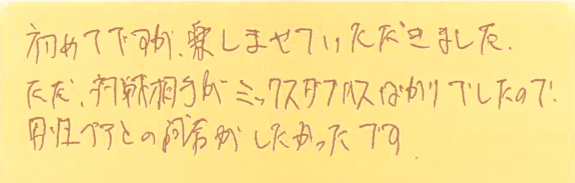 初めてですが、楽しませていただきました.
ただ、対戦相手がミックスダブルスばかりでしたので、
男性ペアとの試合がしたかったです.